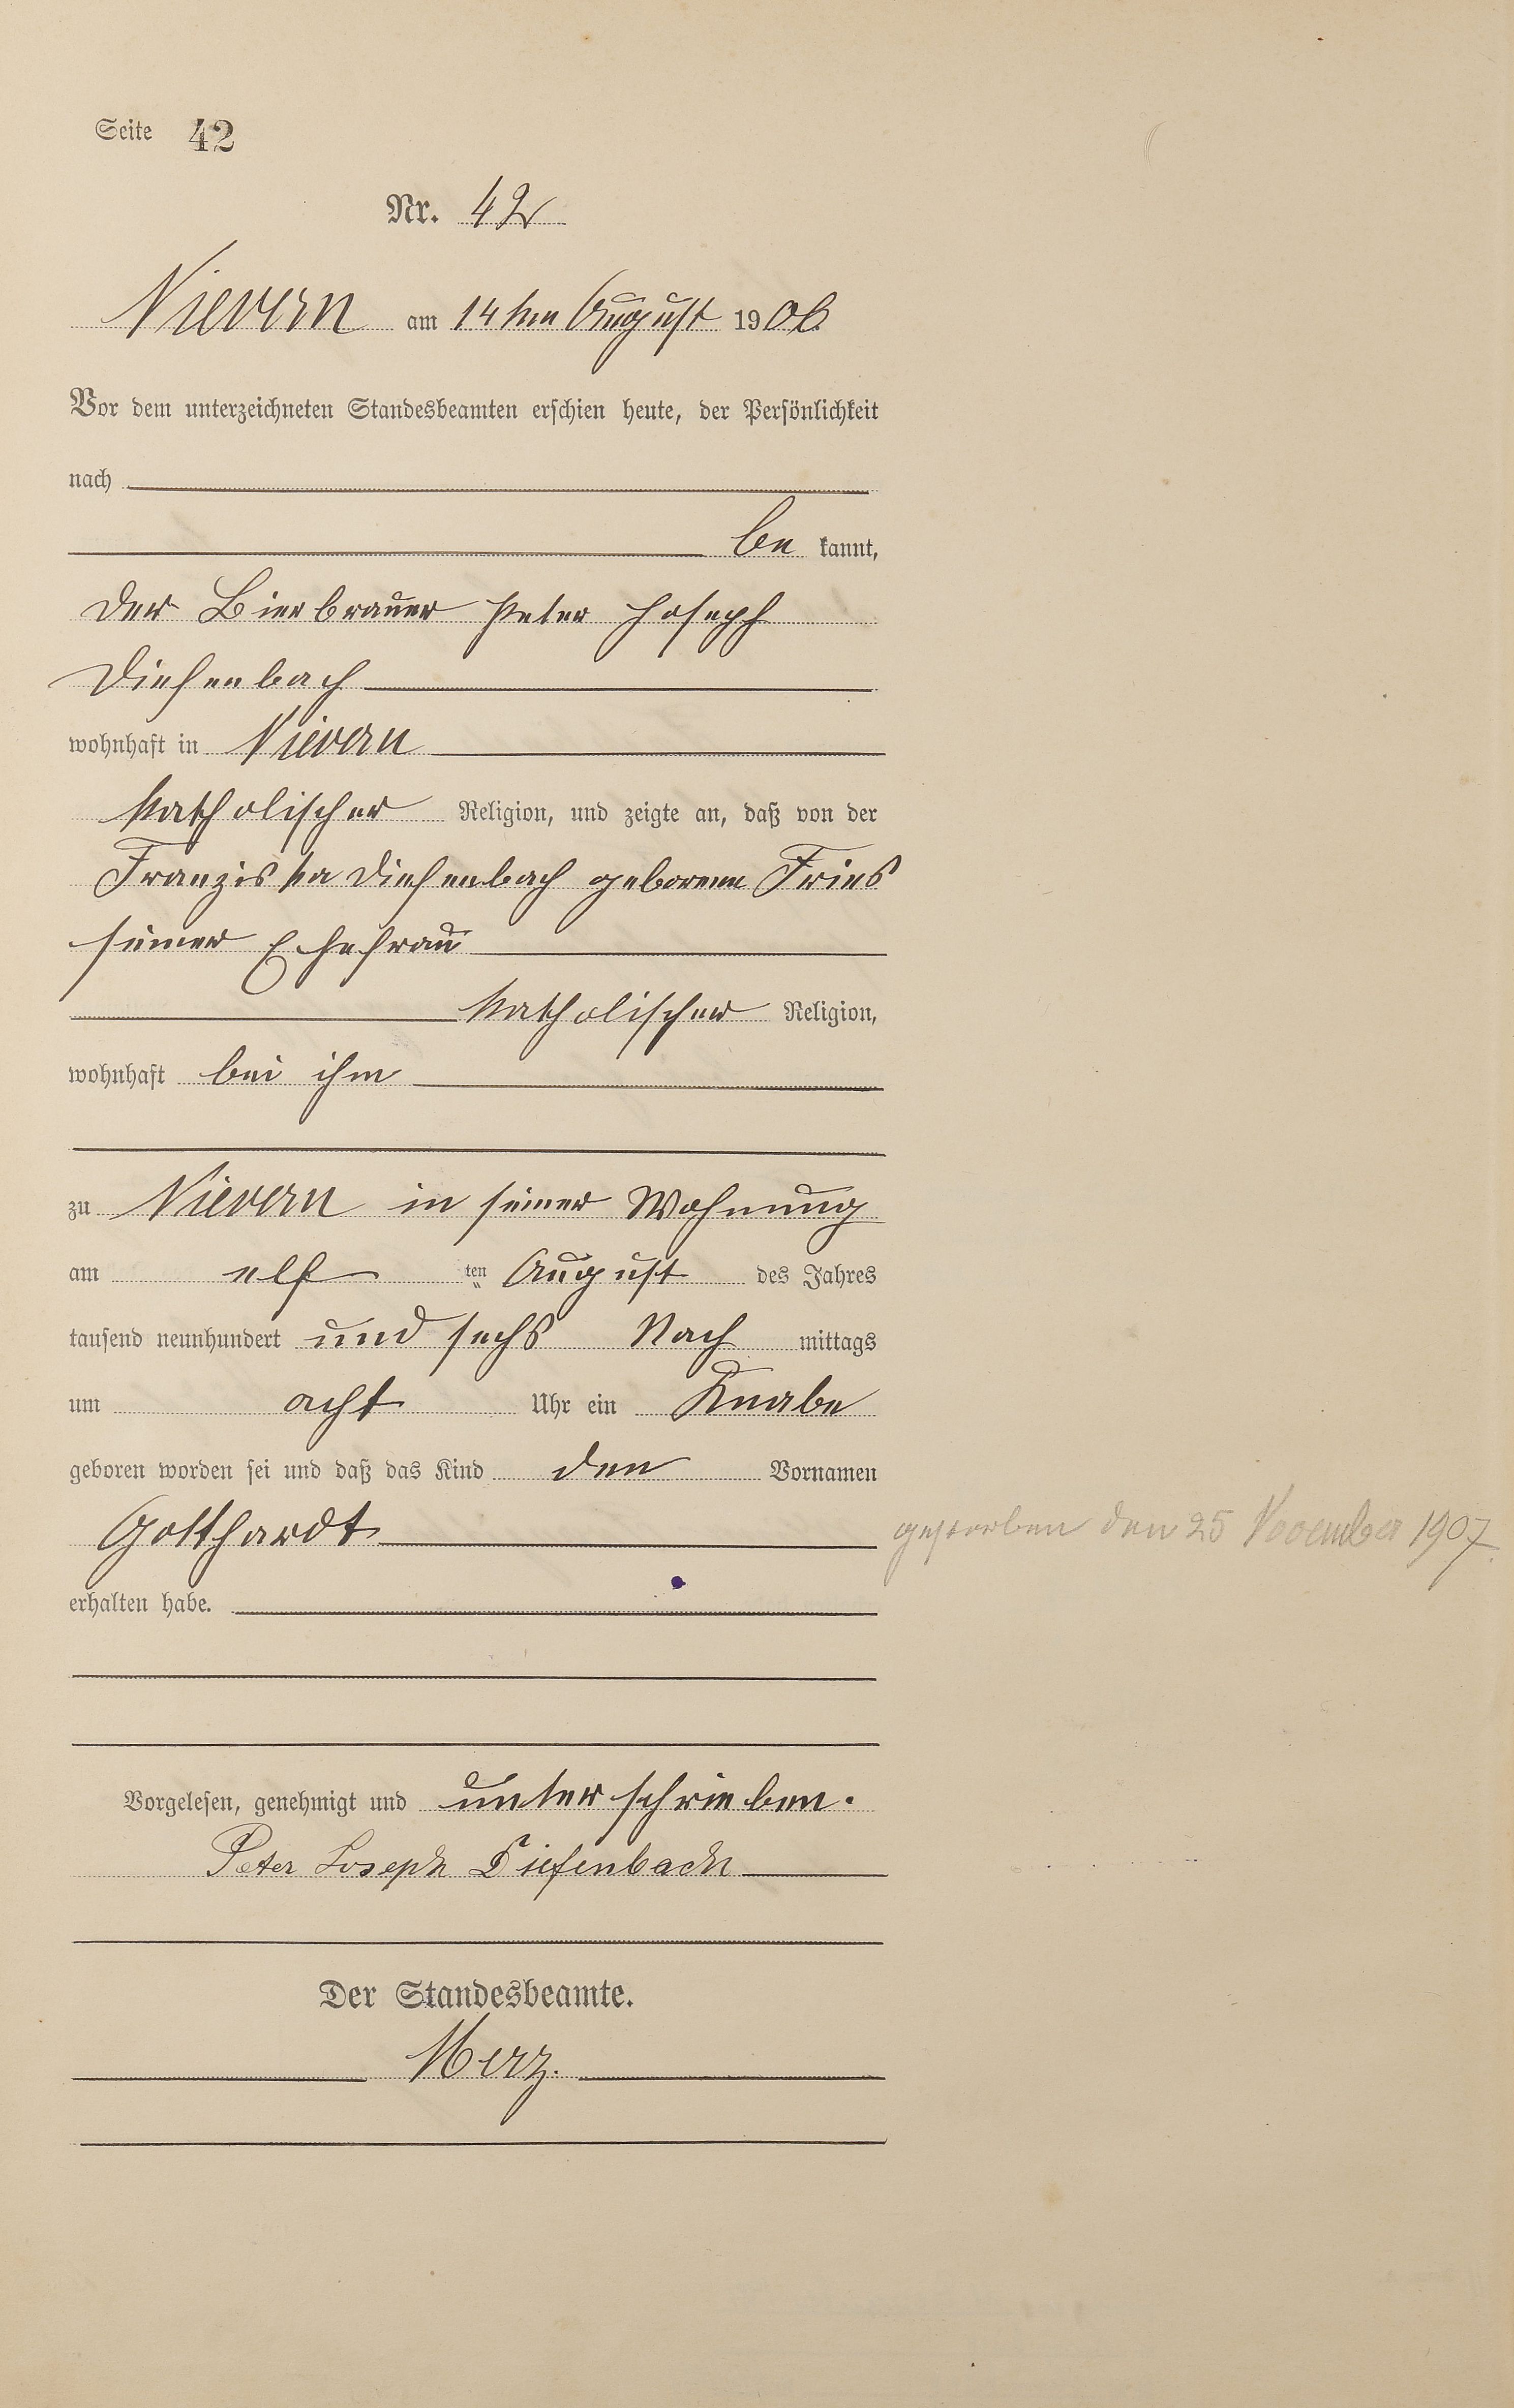 Seite 42
Nr. 42
Nievern am 14ten August 1906.
Vor dem unterzeichneten Standesbeamten erschien heute, der Persönlichkeit
nach
be kannt,
der Bierbrauer Peter Joseph
Diefenbach
wohnhaft in Nievern
katholischer Religion, und zeigte an, daß von der
Franziska Diefenbach geborene Fries
seiner Ehefrau
katholischer Religion,
wohnhaft bei ihm
zu Nievern in seiner Wohnung
am elf ten August des Jahres
tausend neunhundert und sechs Nach mittags
um acht Uhr ein Knabe
geboren worden sei und daß das Kind den Vornamen
Gotthardt
gestorben den 25 November 1907.
erhalten habe.
Vorgelesen, genehmigt und unterschrieben.
Peter Joseph Diefenbach
Der Standesbeamte.
Merz.